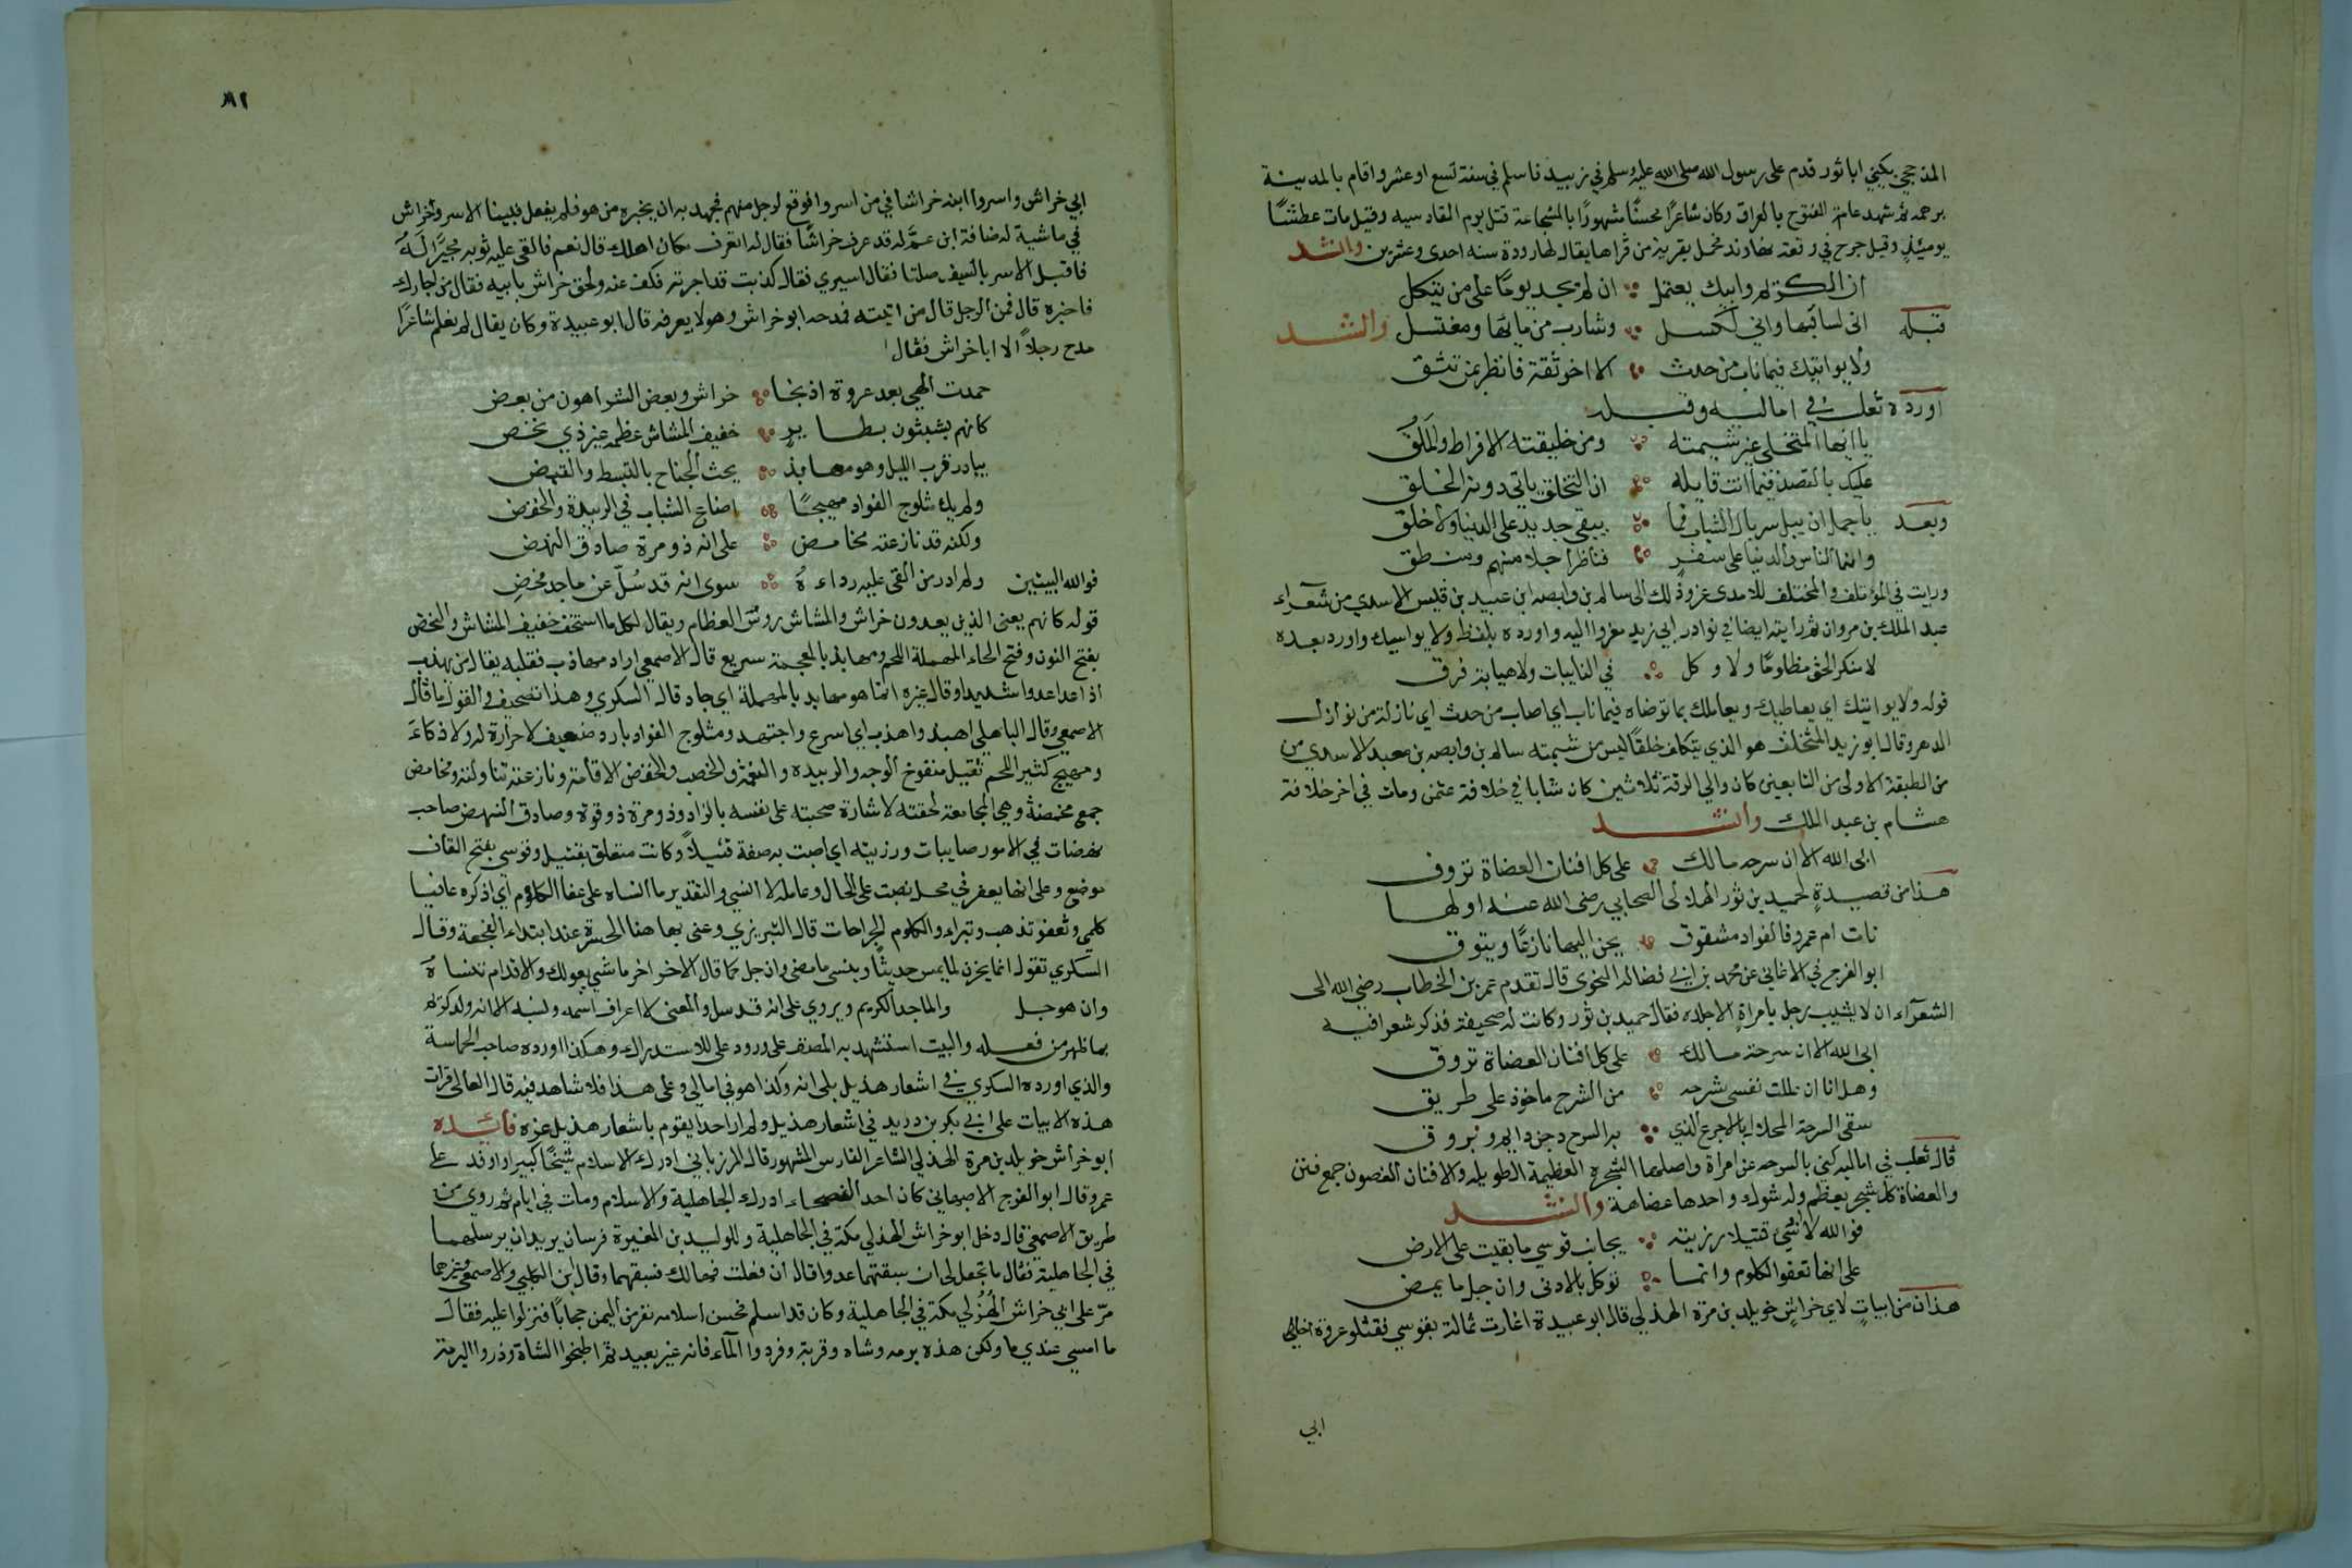 المذحجي يكني ابا ثور قدم على رسول الله صلى الله عليه وسلم في زبيد فاسلم في سنة تسع او عشر واقام بالمدينة
برهة ثم شهد عامة الفتوح بالعراق وكان شاعرًا محسنًا مشهورًا بالشجاعة قتل يوم القادسيه وقيل مات عطشًا
يومئذٍ وقيل جرح في وقعة نهاوند فحمل بقرية من قراها يقال لها رودة سنه احدى وعشرين وانشد
ان الكريم وابيك يعتمل ان لم يجد يومًا على من يتكل
قبله انى لساقيها وانى لكسل وشارب من مائها ومغتسل وانشد
ولا يواتيك فيما ناب من حدث الا اخو ثقة فانظر بمن تثق
اورده ثعلب في اماليه وقبله
يا ايها المتحلي غير شيمته ومن خليقته الافراط والملق
عليك بالقصد فيما انت قايله ان التخلق ياتى دونه الخلق
وبعد يا جمل ان يبل سربال الشباب فما يبقى جديد على الدنيا ولا خلق
وانما الناس والدنيا على سفر فناظر اجلا منهم ومنطق
ورايت في المؤتلف والمختلف للامدى عزو ذلك الى سالم بن وابصه ابن عبيد بن قيس الاسدي من شعراء
عبد الملك بن مروان ثم رأيته ايضا في نوادر ابي زيد معزوا اليه واورده بلفظ ولا يواسيك واورد بعده
في النايبات ولا هيابة فرق
قوله ولا يواتيك اي يعاطيك ويعاملك بما توضاه فيما ناب اي اصاب من حدث اي نازلة من نوازل
الدهر وقال ابو زيد المتخلق هو الذي يتكلف خلقًا ليس من شيمته سالم بن وابصه بن معبد الاسدي من
من الطبقة الاولى من التابعين كان والي الرقة ثلاثين كان شابا في خلافة عثمن ومات في اخر خلافة
هشام بن عبد الملك وانشد
ابى الله الا ان سرحة مالك على كل افنان العضاة تروق
هذا من قصيدةٍ لحميد بن ثور الهلالى الصحابي رضى الله عنه اولها
نات ام عمرو فالفواد مشوق يحن اليها نازعًا ويتوق
ابو الفرج في الاغاني عن محمد بن ابي فضاله النحوى قال تقدم عمر بن الخطاب رضي الله الى
الشعرآء ان لا يشبب رجل بامراةٍ الا جلده فقال حميد بن ثور وكانت له صحيفة فذكر شعرا فيه
ابى الله الا ان سرحة مالك على كل افنان العضاة تروق
وهل انا ان عللت نفسى بسرحه من السرح ماخوذ على طريق
سقى السرحة المحلال بالاجرع الذي به السرح دجن دايم وبروق
قال ثعلب في اماليه كنى بالسرحه عن امراة واصلها الشجره العظيمة الطويله والافنان الغصون جمع فنن
والعضاة كل شجر يعظم وله شوك واحدها عضاهة وانشد
فوالله لا انسى قتيلا رزيته بجانب قوسي ما بقيت على الارض
على انها تعفو الكلوم وانما نوكل بالادنى وان جل ما يمض
هذان من ابياتٍ لابي خراشٍ خويلد بن مرة الهذلي قال ابو عبيدة اغارت ثمالة بقوسي فقتلو عروة اخا
ابي
٨٢
ابي خراش واسروا ابنه خراشا في من اسروا فوقع لرجل منهم فجهد به ان يخبره من هو فلم يفعل فبينا الاسر وخراش
في ماشية له ضافه ابن عمٍّ له قد عرف خراشًا فقال له اتعرف مكان اهلك قال نعم فالقى عليه ثوبه مجيرًا له
فاقبل الاسر بالسيف صلتا فقال اسيري فقال كذبت قد اجرته فكف عنه ولحق خراش بابيه فقال من اجارك
فاخبره قال فمن الرجل قال من اتيته فمدحه ابو خراش وهو لا يعرفه قال ابو عبيدة وكان يقال لم نعلم شاعرًا
مدح رجلاً الا ابا خراش فقال
حمدت الهي بعد عروة اذ نجا خراش وبعض الشر اهون من بعض
كانهم يشبثون بطاير خفيف المشاش عظمه غير ذي نحض
يبادر قرب الليل وهو مهابذ يحث الجناح بالبسط والقبض
ولم يك مثلوج الفواد مهيجًا اضاع الشباب في الربيدة والخفض
ولكنه قد نازعته مخامص على انه ذو مرة صادق النهض
فوالله البيتين ولم ادر من القى عليه رداءه سوى انه قد سُلّ عن ماجد محضِ
قوله كانهم يعنى الذين يعدون خراش والمشاش روس العظام ويقال لكل ما استخف خفيف المشاش والنحض
بفتح النون وفتح الحاء المهملة اللحم ومهابذ بالمعجمة سريع قال الاصمعي اراد مهاذب فقلبه يقال من يهذب
اذا عدا عدوا شديدا وقال غيره انما هو مهابد بالمهملة اي جاد قال السكري وهذا تصحيف والقول ما قال
الاصمعي وقال الباهلي اهبذ واهذب اي اسرع واجتهد ومثلوج الفواد بارد ضعيف لا حرارة له ولا ذكاء
ومهيج كثير اللحم ثقيل منفوخ الوجه والربيده والنعمة والخصب والخفض الاقامة ونازعته تناولته ومخامص
جمع مخمصة وهي المجاعة لحقته لاشارة صحبته على نفسه بالزاد وذو مرة ذو قوة وصادق النهض صاحب
نهضات في الامور صايبات ورزيته اي اصبت به صفة قتيلاً وكانت متعلق بقتيل وقوسى بفتح القاف
موضع وعلى انها يعفر في محل نصب على الحال وعامله لا انسي والتقدير ما انساه على عفا الكلوم اي اذكره عافيا
كلمي وتعفو تذهب وتبراء والكلوم الجراحات قال التبريزي وعنى بها هنا الحسرة عند ابتداء الفجعة وقال
السكري تقول انما يحزن لما يمس حديثًا وينسى ما مضى وان جل كما قال الاخر
وان هو جل والماجد الكريم ويروي على انه قد سل والمعنى لا اعرف اسمه ونسبه الا انه ولد كريم
بما ظهر من فعله والبيت استشهد به المصنف على ورود على للاستدراك وهكذا اورده صاحب الحماسة
والذي اورده السكري في اشعار هذيل بلى انه وكذا هو في امالي وعلى هذا فلا شاهد فيه قال القالى قرات
هذه الابيات على ابي بكر بن دريد في اشعار هذيل ولم ار احدا يقوم باشعار هذيل غيره فائده
ابو خراش خويلد بن مرة الهذلي الشاعر الفارس المشهور قال المرزباني ادرك الاسلام شيخًا كبيرا وافد على
عمر وقال ابو الفرج الاصبهاني كان احد الفصحاء ادرك الجاهلية والاسلام ومات في ايام ثم روي من
طريق الاصمعي قال دخل ابو خراش الهذلي مكة في الجاهلية وللوليد بن المغيرة فرسان يريد ان يرسلهما
في الجاهلية فقال ما تجعل لى ان سبقتهما عدوا قال ان فعلت فهما لك فسبقهما وقال ابن الكلبي والاصمعي وغيرهما
مرّ على ابي خراش الهذلي مكة في الجاهلية وكان قد اسلم فحسن اسلامه نفر من اليمن حجاجًا فنزلوا عليه فقال
ما امسى عندي ما ولكن هذه برمه وشاه وقربة وفردوا المآء فانه غير بعيد ثم اطبخوا الشاة وذروا البرمة